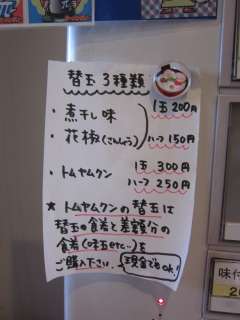 替玉 3種類
・煮干し味 1玉200円
・花椒(さんしょう) ハーフ150円
・トムヤムクン 1玉 300円
ハーフ 250円
★ トムヤムクンの替玉は
替玉の食券と差額分の
食券(味玉etc…)を
ご購入下さい。 現金でもok!
味付